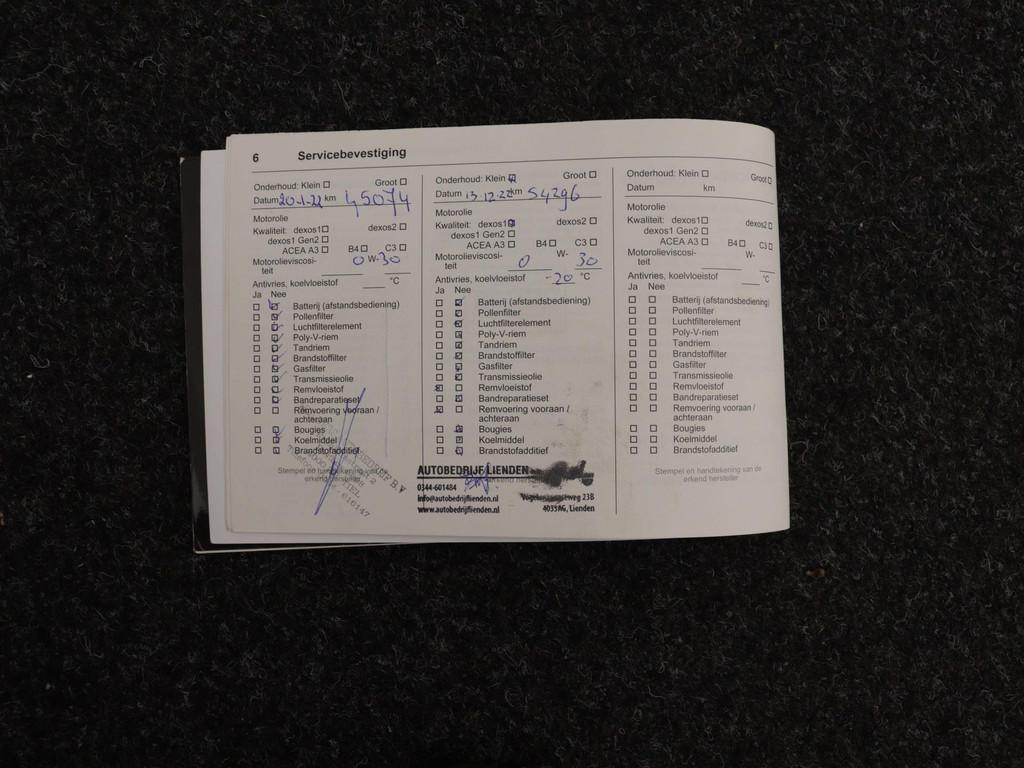 6 Servicebevestiging
Onderhoud: Klein Groot
Datum 20-1-22 km 45074
Motorolie
Kwaliteit: dexos1 dexos2
dexos1 Gen2
ACEA A3 B4 C3
Motorolieviscosi- 0 W-30
teit
Antivries, koelvloeistof °C
Ja Nee
Batterij (afstandsbediening)
Pollenfilter
Luchtfilterelement
Poly-V-riem
Tandriem
Brandstoffilter
Gasfilter
Transmissieolie
Remvloeistof
Bandreparatieset
Remvoering vooraan /
achteraan
Bougies
Koelmiddel
Brandstofadditief
Stempel en handtekening van de
erkend hersteller
TIEL
616147
Onderhoud: Klein Groot
Datum 13.12.22 km 54296
Motorolie
Kwaliteit: dexos1 dexos2
dexos1 Gen2
ACEA A3 B4 C3
Motorolieviscosi- W-
teit 0 30
Antivries, koelvloeistof -20 °C
Ja Nee
Batterij (afstandsbediening)
Pollenfilter
Luchtfilterelement
Poly-V-riem
Tandriem
Brandstoffilter
Gasfilter
Transmissieolie
Remvloeistof
Bandreparatieset
Remvoering vooraan /
achteraan
Bougies
Koelmiddel
Brandstofadditief
AUTOBEDRIJF LIENDEN
erkend hersteller
0344-601484
info@autobedrijflienden.nl 23B
www.autobedrijflienden.nl 4033AG, Lienden
Onderhoud: Klein Groot
Datum km
Motorolie
Kwaliteit: dexos1 dexos2
dexos1 Gen2
ACEA A3 B4 C3
Motorolieviscosi- W-
teit
Antivries, koelvloeistof °C
Ja Nee
Batterij (afstandsbediening)
Pollenfilter
Luchtfilterelement
Poly-V-riem
Tandriem
Brandstoffilter
Gasfilter
Transmissieolie
Remvloeistof
Bandreparatieset
Remvoering vooraan /
achteraan
Bougies
Koelmiddel
Brandstofadditief
Stempel en handtekening van de
erkend hersteller